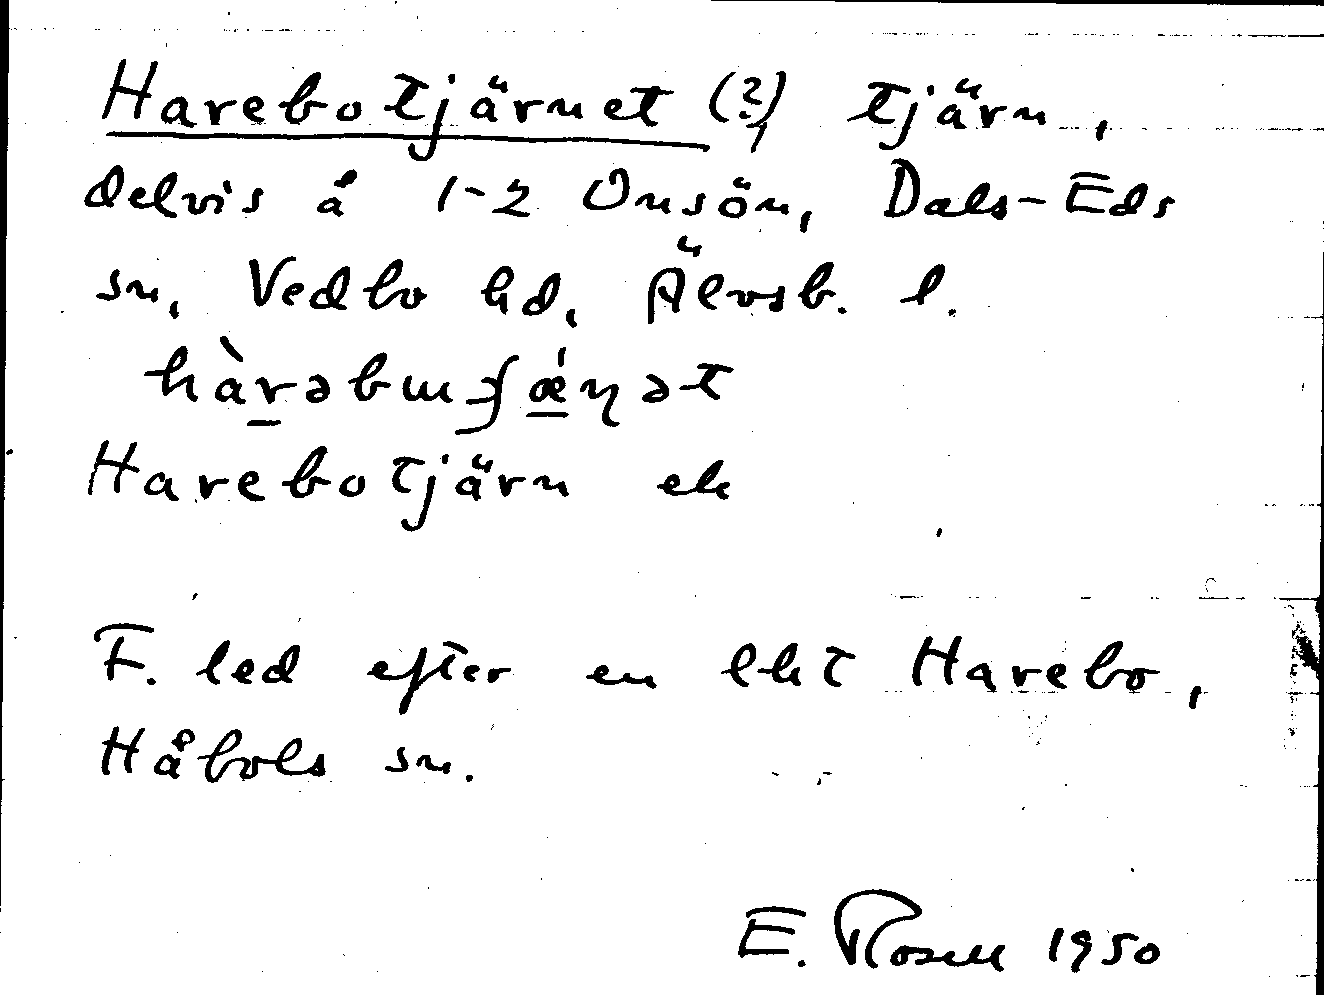 Harebotjärnet (?), tjärn,
delvis å 1-2 Onsön, Dals-Eds
sn, Vedbo hd, Älvsb. l.
Harebotjärn ek
F. led efter en lht Harebo,
Håbols sn.
E. Rosell 1950